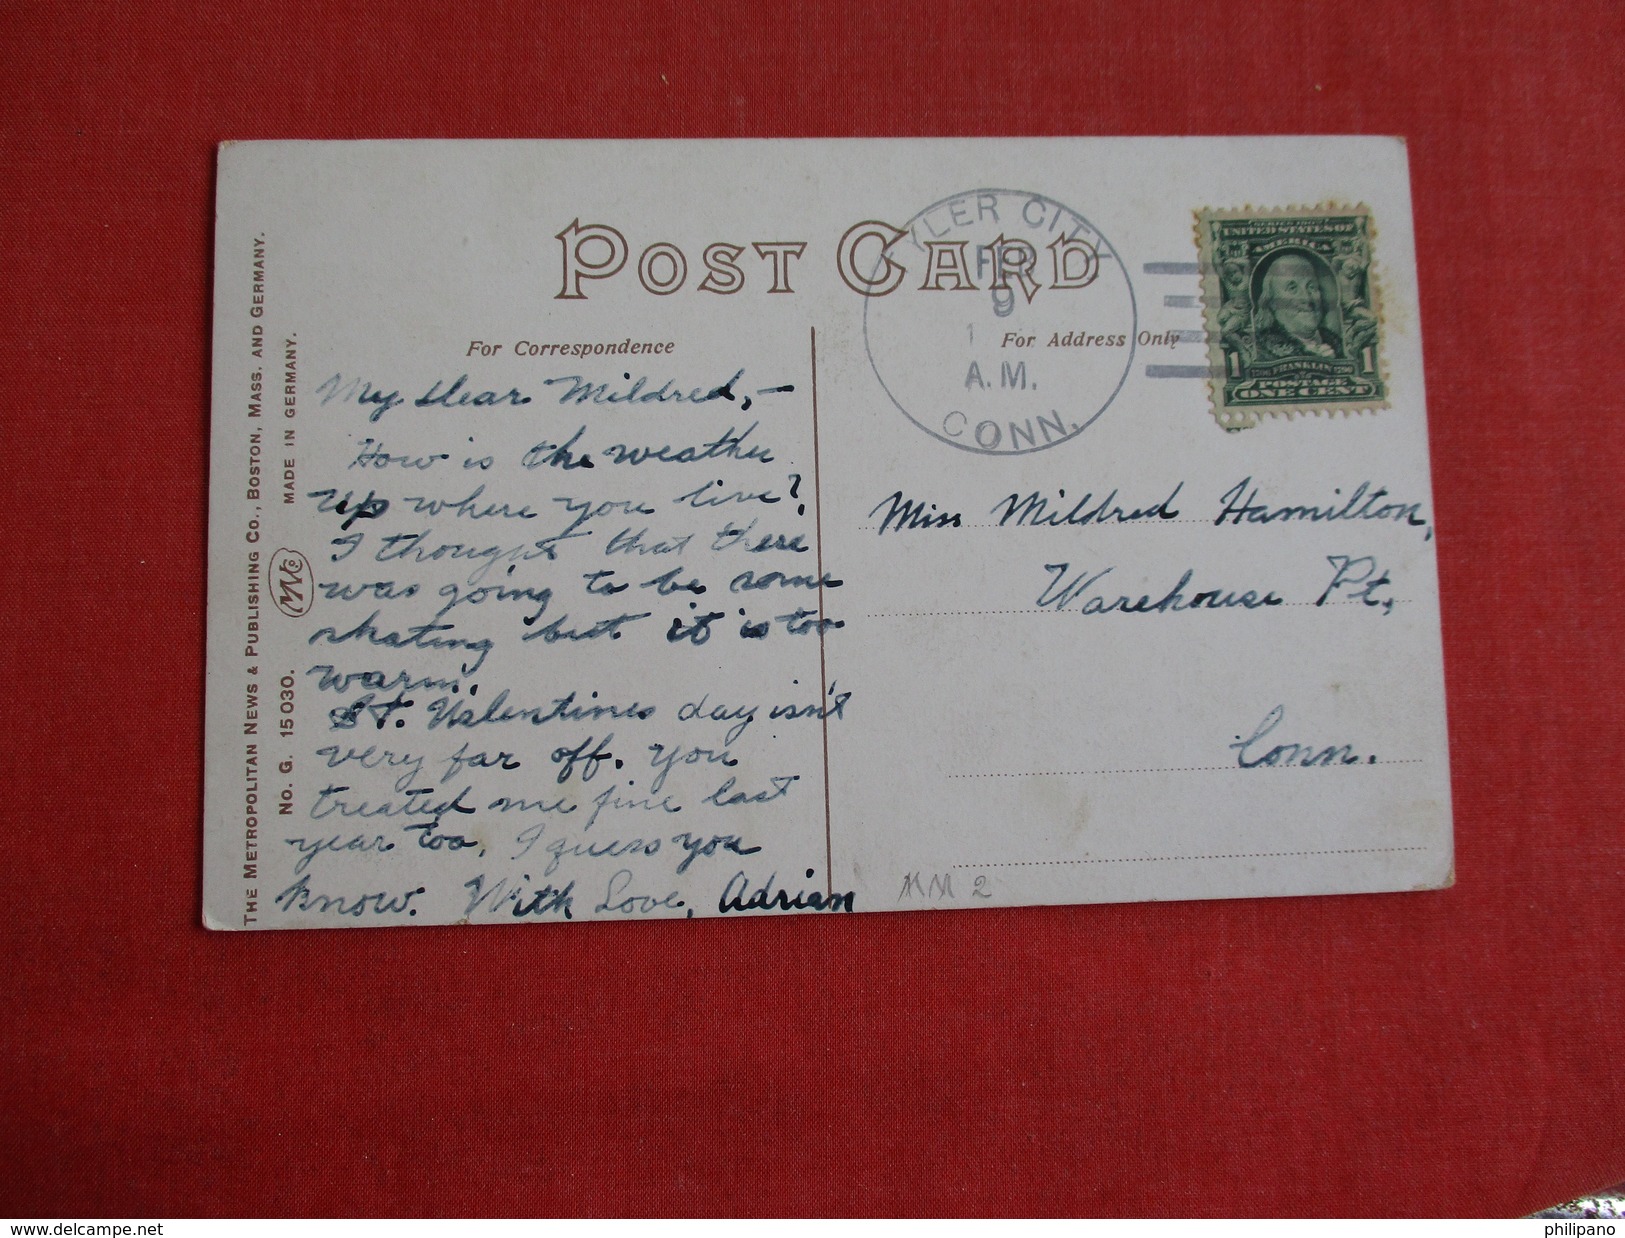 POST CARD
For Correspondence
For Address Only
THE METROPOLITAN NEWS & PUBLISHING CO., BOSTON, MASS. AND GERMANY.
No. G. 15030.
MADE IN GERMANY.
My dear Mildred,—
How is the weather
up where you live?
I thought that there
was going to be some
skating but it is too
warm.
St. Valentines day isn't
very far off. You
treated me fine last
year too, I guess you
know. With Love, Adrian
YLER CITY
9
1
A.M.
CONN.
SERIES 1902
UNITED STATES OF
AMERICA
1 1
FRANKLIN
POSTAGE
ONE CENT
Miss Mildred Hamilton,
Warehouse Pt.,
Conn.
2
delcampe.net
philipano